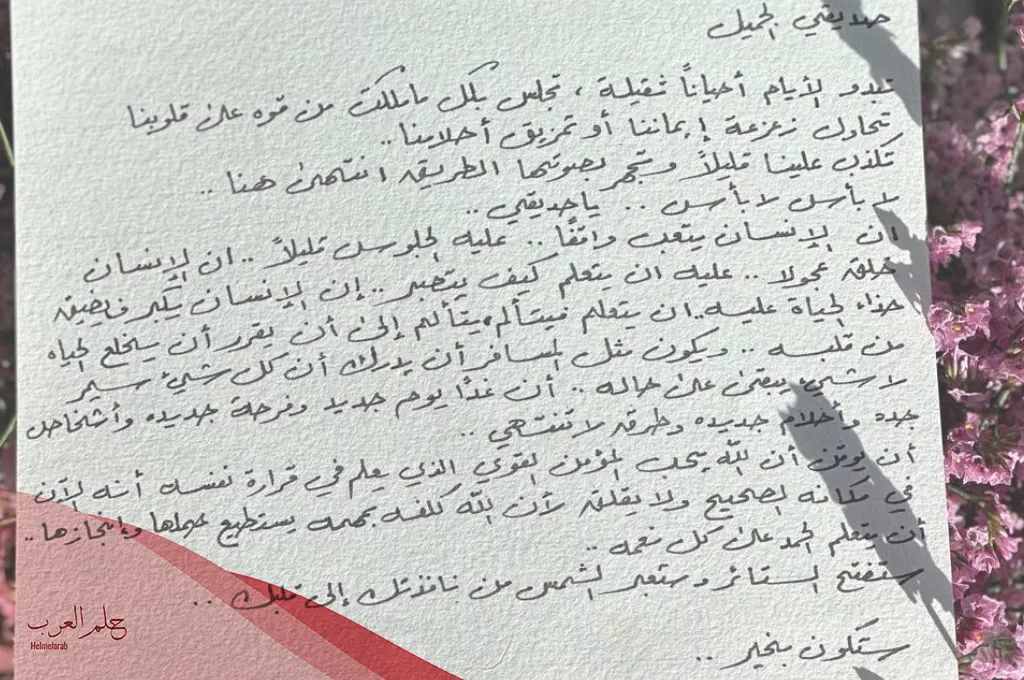 صديقي الجميل
تبدو الأيام أحياناً ثقيلة ، تجلس بكل ماملكت من قوه على قلوبنا
تحاول زعزعة إيماننا أو تمزيق أحلامنا ..
تكذب علينا قليلاً وتجهر بصوتها الطريق انتهى هنا ..
لا بأس لا بأس .. ياصديقي ..
ان الإنسان يتعب واقفًا .. عليه الجلوس قليلاً .. ان الإنسان
خلق عجولا .. عليه ان يتعلم كيف يتصبر .. إن الإنسان يكبر فيضيق
حذاء الحياة عليه .. ان يتعلم فيتألم، يتألم إلى أن يقرر أن يخلع الحياه
من قلبه .. ويكون مثل المسافر أن يدرك أن كل شيء سير
لا شيء يبقى على حاله .. أن غدًا يوم جديد وفرحة جديده وأشخاص
جدد وأحلام جديده وطرق لا تنتهي ..
أن يوقن أن الله يحب المؤمن القوي الذي يعلم في قرارة نفسه أنه الآن
في مكانه الصحيح ولا يقلق لأن الله كلفه بمهمه يستطيع حملها وإنجازها ..
أن يتعلم الحمد على كل نعمه ..
ستفتح الستائر وستعبر الشمس من نافذتك إلى قلبك ..
ستكون بخير ..
حلم العرب
Helmelarab